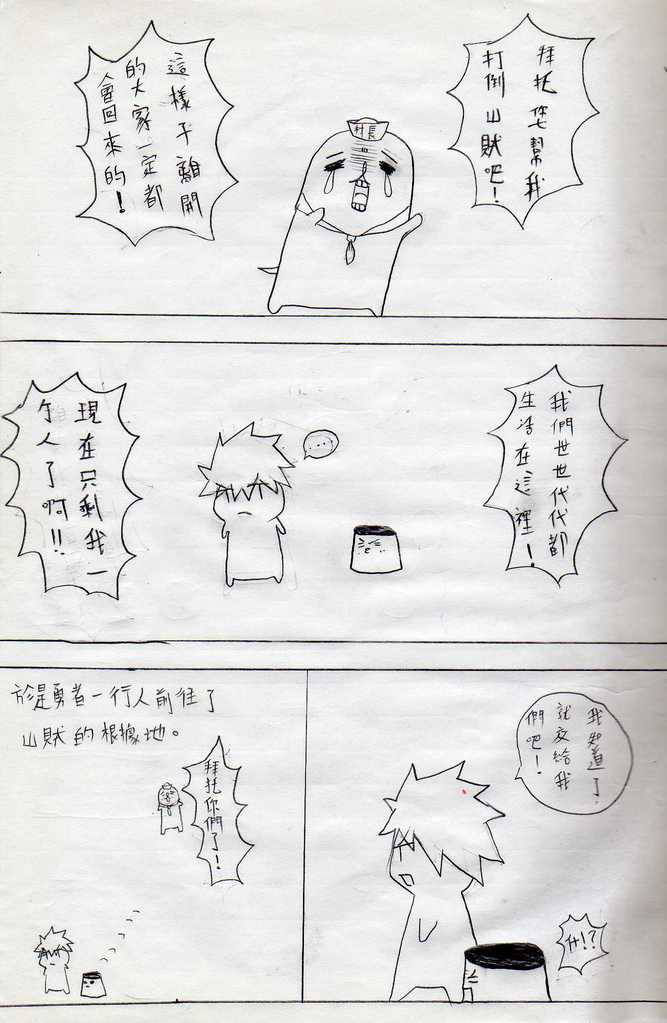 拜托您幫我
打倒山賊吧！
村長
這樣子離開
的大家一定都
會回來的！
我們世世代代都
生活在這裡！
...
現在只剩我一
个人了啊!!
我知道了.
就交給我
們吧！
什!?
於是勇者一行人前往了
山賊的根據地。
拜托你們了！